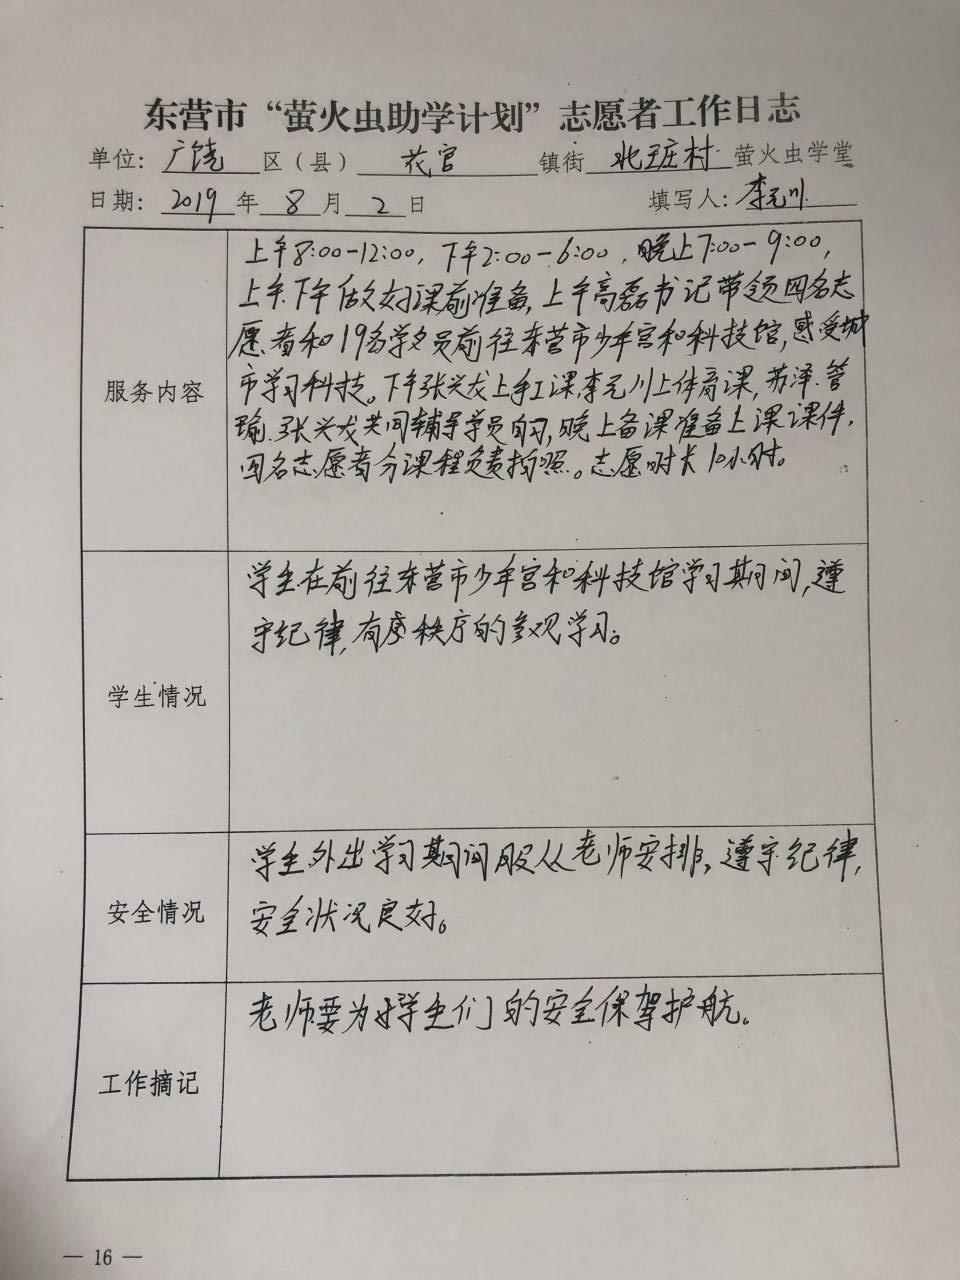 东营市“萤火虫助学计划”志愿者工作日志
单位：广饶区（县）花官镇街北王庄村萤火虫学堂
日期：2019年8月2日 填写人：李元川
服务内容
上午8:00-12:00，下午2:00-6:00，晚上7:00-9:00，
上午、下午做好课前准备，上午高磊书记带领四名志
愿者和19名学员前往东营市少年宫和科技馆，感受城
市学习科技。下午张兴龙上手工课，李元川上体育课，苏泽、管
瑜、张兴龙共同辅导学员自习，晚上备课准备上课课件，
四名志愿者分课程负责拍照。志愿时长10小时。
学生情况
学生在前往东营市少年宫和科技馆学习期间，遵
守纪律，有序秩序的参观学习。
安全情况
学生外出学习期间服从老师安排，遵守纪律，
安全状况良好。
工作摘记
老师要为好学生们的安全保驾护航。
— 16 —